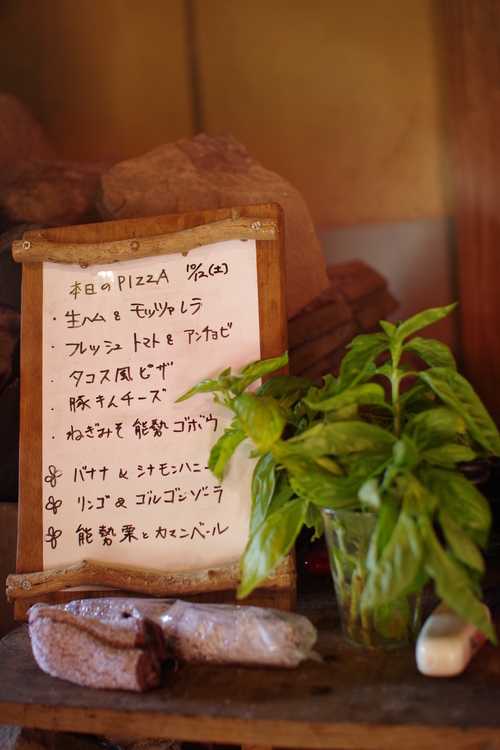 本日のPIZZA 10/12(土)
・生ハム & モッツァレラ
・フレッシュ トマト & アンチョビ
・タコス風ピザ
・豚キムチーズ
・ねぎみそ 能勢ゴボウ
バナナ & シナモンハニー
リンゴ & ゴルゴンゾーラ
能勢栗とカマンベール